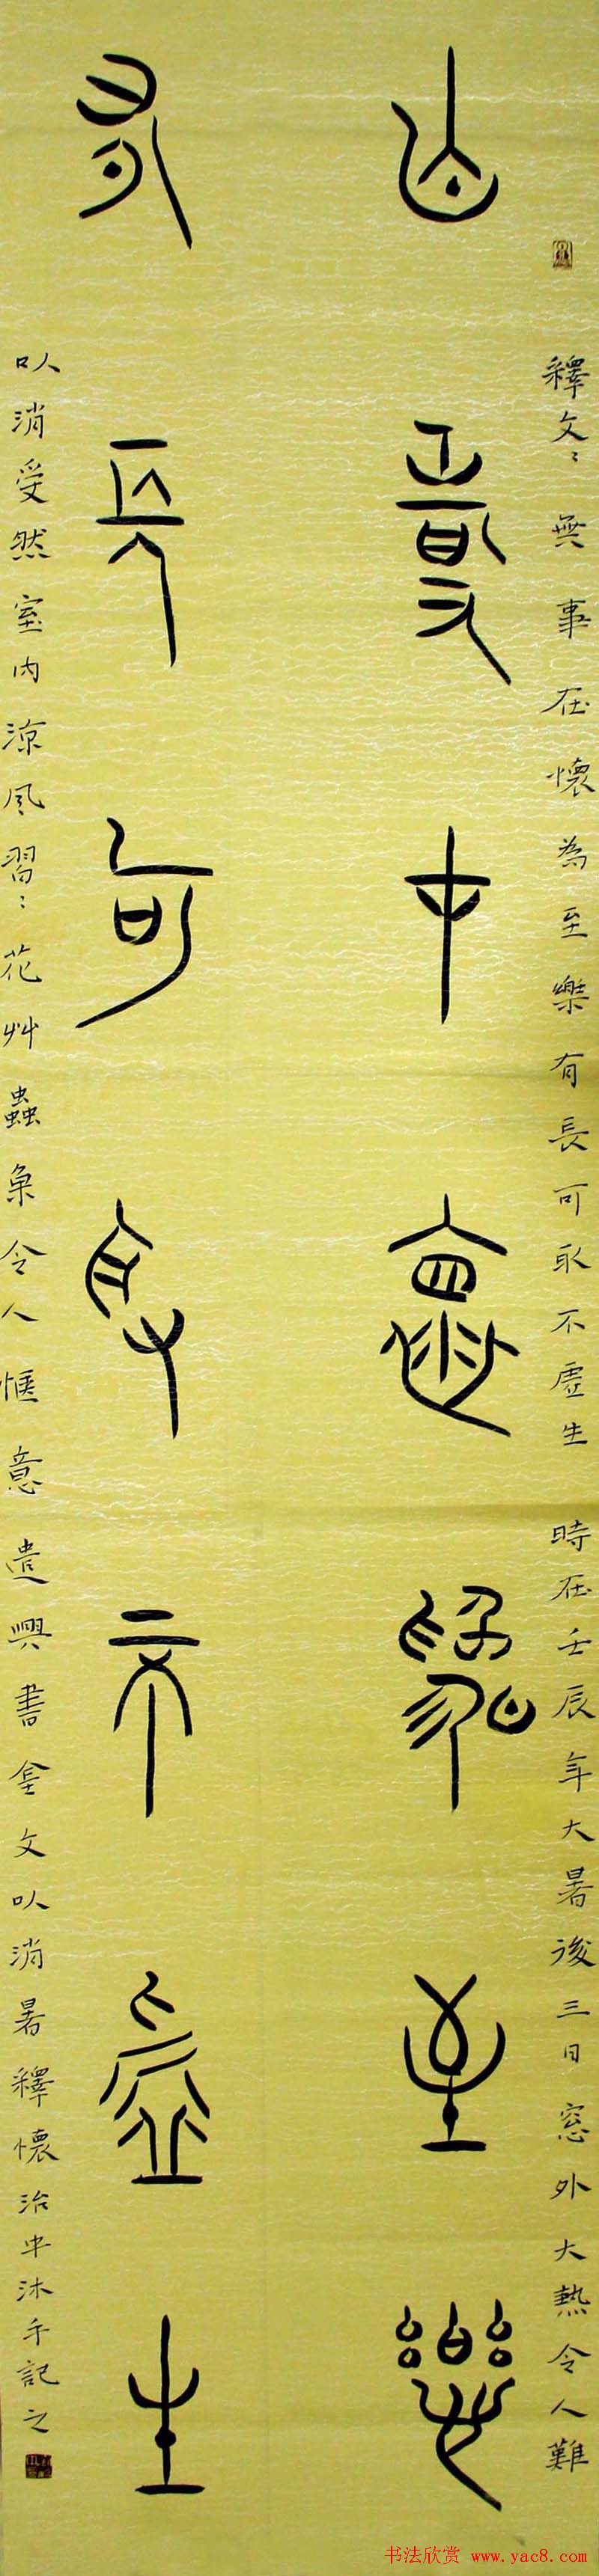 無事在懷為至樂
有長可取不虛生
釋文：無事在懷為至樂有長可取不虛生 時在壬辰年大暑後三日窓外大熱令人難
㕥消受然室内涼風習〻花艸蟲魚令人愜意遣興書金文㕥消暑釋懷治中沐手記之
书法欣赏 www.yac8.com